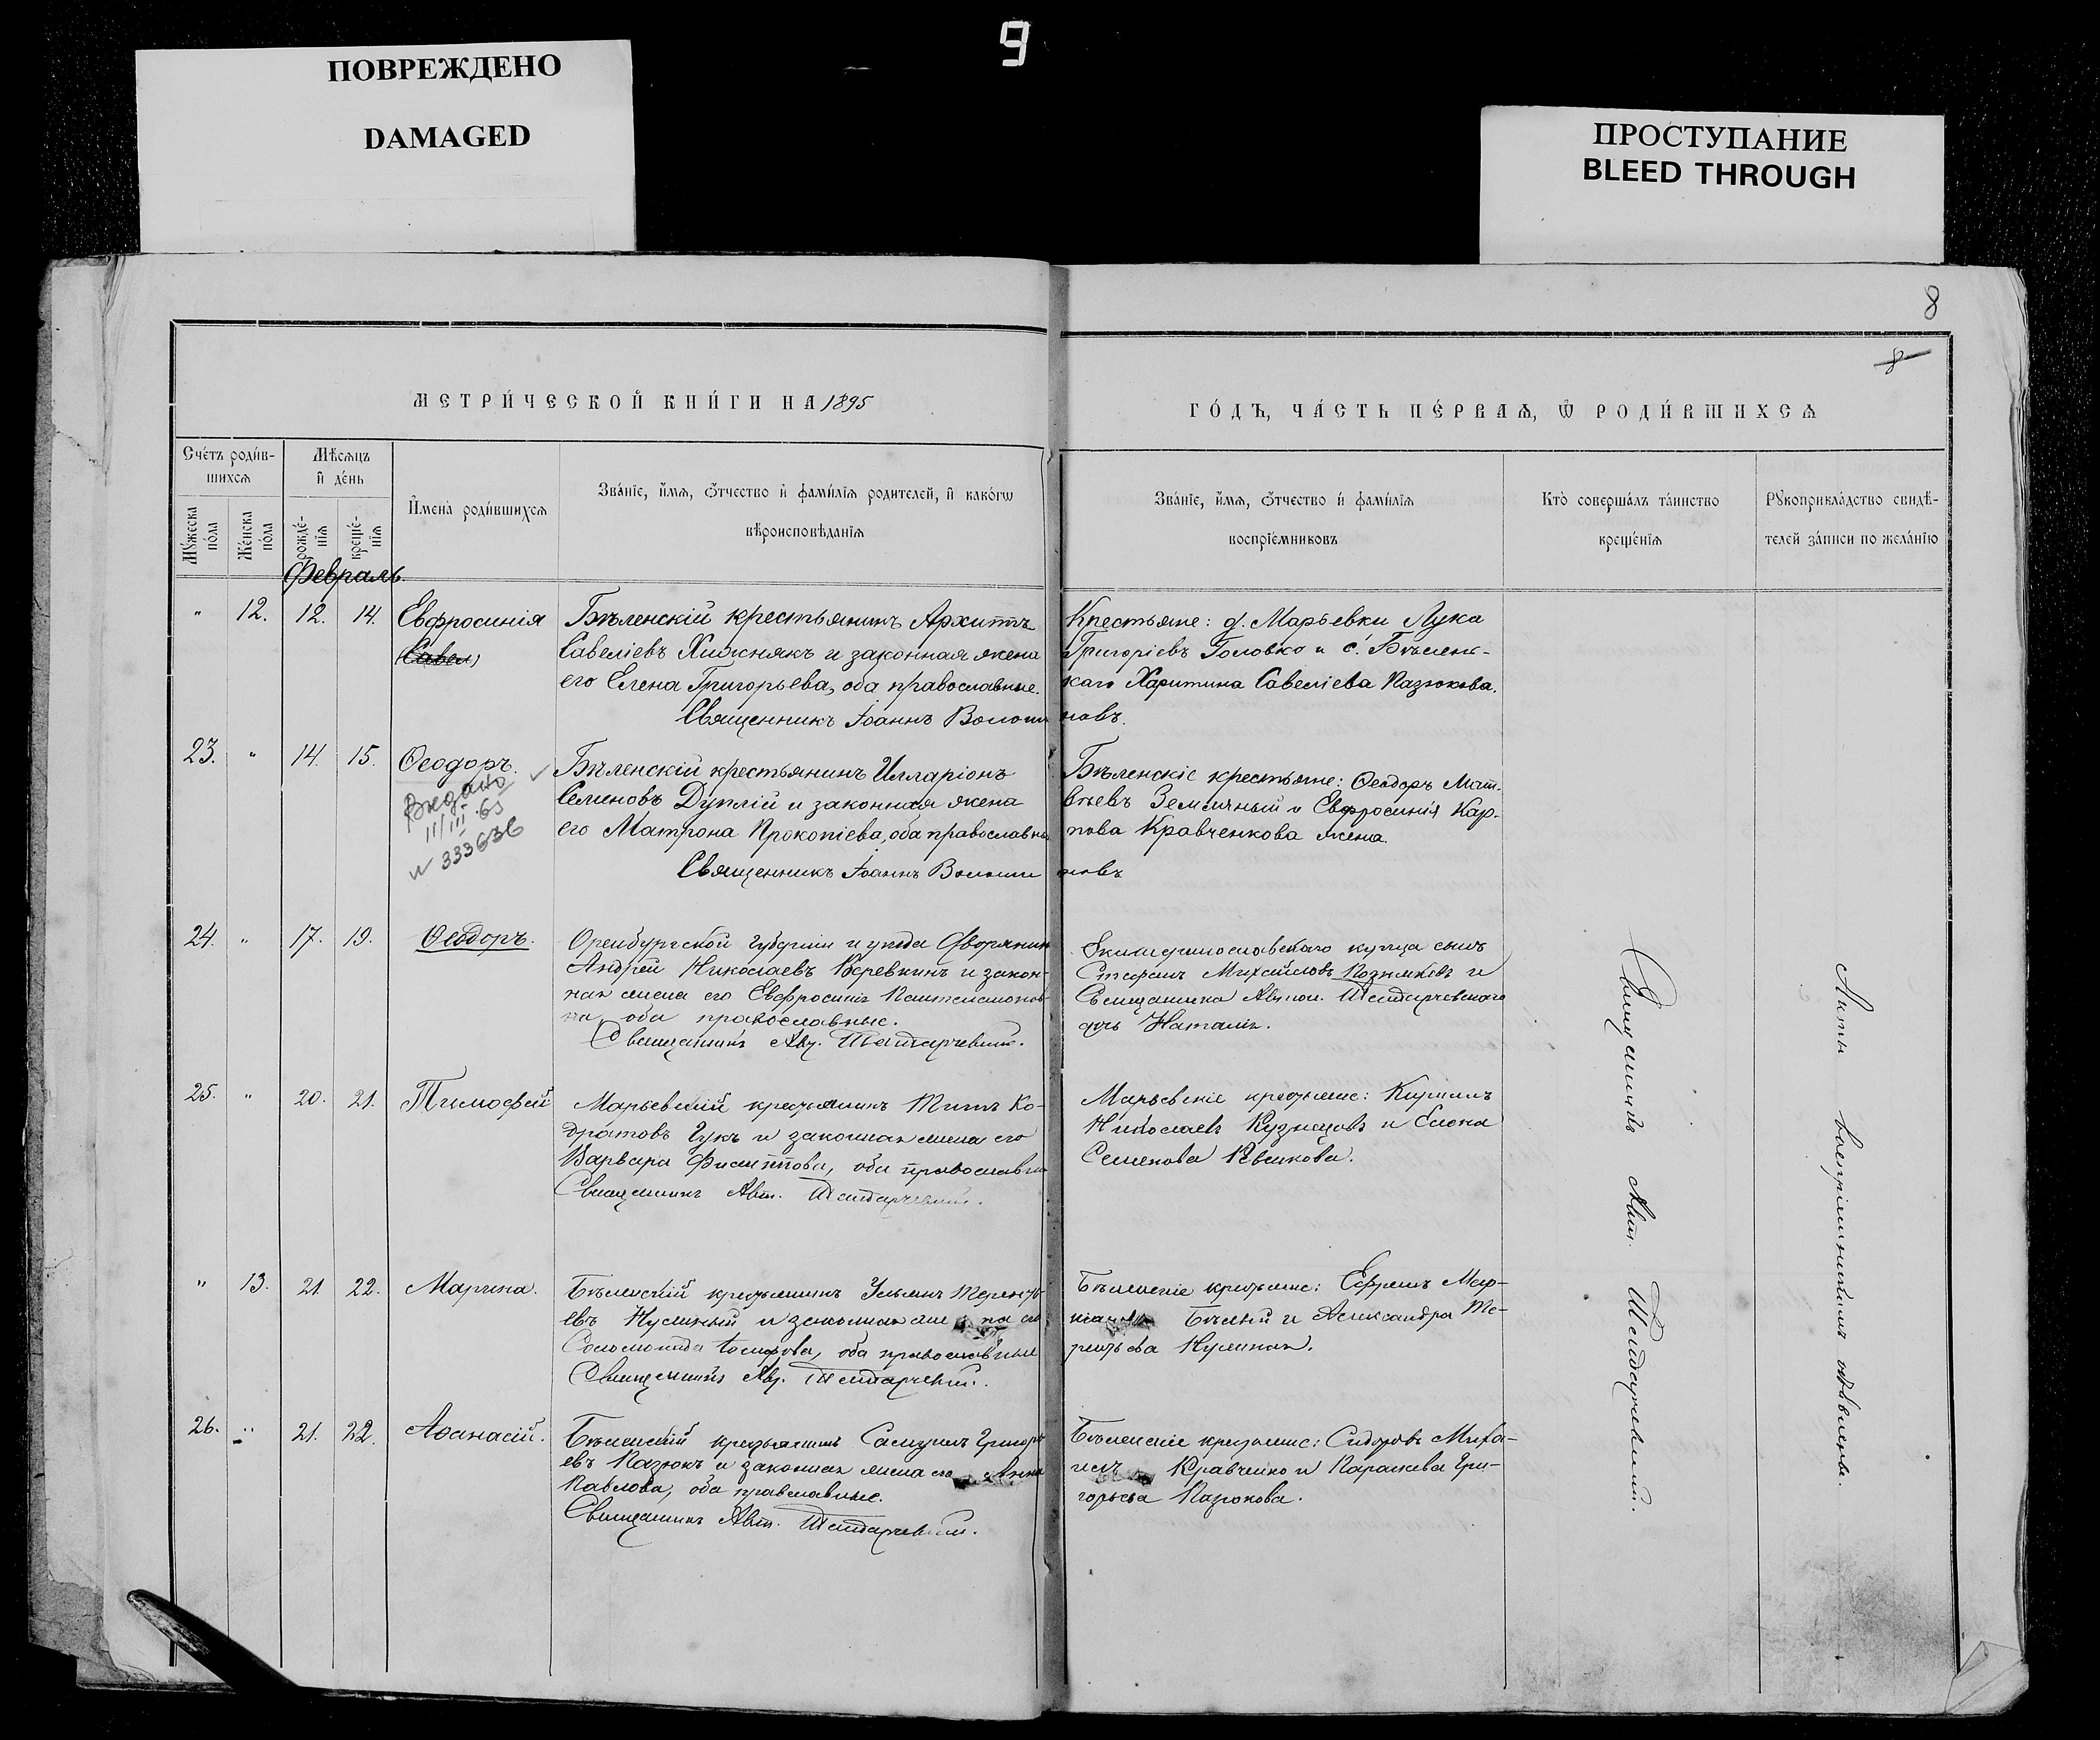 9
ПОВРЕЖДЕНО
DAMAGED
ПРОСТУПАНИЕ
BLEED THROUGH
8
8
МЕТРИ́ЧЕСКОЙ КНИ́ГИ НА 1895
ГО́ДЪ, ЧА́СТЬ ПЕ́РВАѦ, Ѿ РОДИ́ВШИХСѦ
Сче́тъ роди́в-
шихсѧ
Мѣ́сѧцъ
и҆ де́нь
Мꙋ́жеска
по́ла
Же́нска
по́ла
рожде́-
нїѧ
креще́-
нїѧ
И҆мена̀ роди́вшихсѧ
Зва́нїе, и҆́мѧ, ѻ҆́тчество и҆ фами́лїѧ роди́телей, и҆ како́гѡ
вѣроисповѣ́данїѧ
Зва́нїе, и҆́мѧ, ѻ҆́тчество и҆ фами́лїѧ
воспрїе́мниковъ
Кто̀ соверша́лъ та́инство
креще́нїѧ
Рꙋкоприкла́дство свидѣ́-
телей за́писи по жела́нїю
Февраль.
" 12. 12. 14. Евфросинія
(Савел)
Бѣленскій крестьянинъ Архипъ
Савеліевъ Хижнякъ и законная жена
его Елена Григорьева, оба православные.
Священникъ Іоаннъ Волошиновъ.
Крестьяне: д. Марьевки Лука
Григоріевъ Головко и с. Бѣлен-
скаго Харитина Савеліева Пазюкова.
23. " 14. 15. Ѳеодоръ.
Видано
11/III.63
№ 333636
Бѣленскій крестьянинъ Илларіонъ
Семеновъ Дуплій и законная жена
его Матрона Прокопіева, оба православны
Священникъ Іоаннъ Волошиновъ
Бѣленскіе крестьяне: Ѳеодоръ Мат-
вѣевъ Землячный и Евфросинія Кар-
пова Кравченкова жена.
24. " 17. 19. Ѳеодоръ.
Оренбургской губерніи и уѣзда дворянин
Андрей Николаевъ Веревкинъ и закон-
ная жена его Евфросинія Пантелеимонов-
на, оба православные.
Священникъ Авт.
Екатеринославскаго купца сынъ
Стефанъ Михайловъ и
Священника Автон.
дочь Наталія.
25. " 20. 21. Тимофей
Марьевскій крестьянинъ Титъ Ко-
дратовъ Гукъ и законная жена его
Варвара Филиппова, оба православны
Священникъ Авт.
Марьевскіе крестьяне: Кириллъ
Николаевъ Кузнецовъ и Елена
Семенова
" 13. 21. 22. Марина.
Бѣленскій крестьянинъ Ульянъ Терентьевъ
и законная жена его
Соломонида Іосифова, оба православные
Священникъ Авт.
Бѣленскіе крестьяне: Ефремъ Мар-
Бѣлый и Александра Те-
рентьева
26. " 21. 22. Аѳанасій.
Бѣленскій крестьянинъ Самуилъ Григорь-
евъ Пазюкъ и законная жена его Анна
Павлова, оба православные.
Священникъ Авт.
Бѣленскіе крестьяне: Сидоръ Михаи-
Кравченко и Параскева Гри-
горьева Пазюкова.
Священникъ Авт.